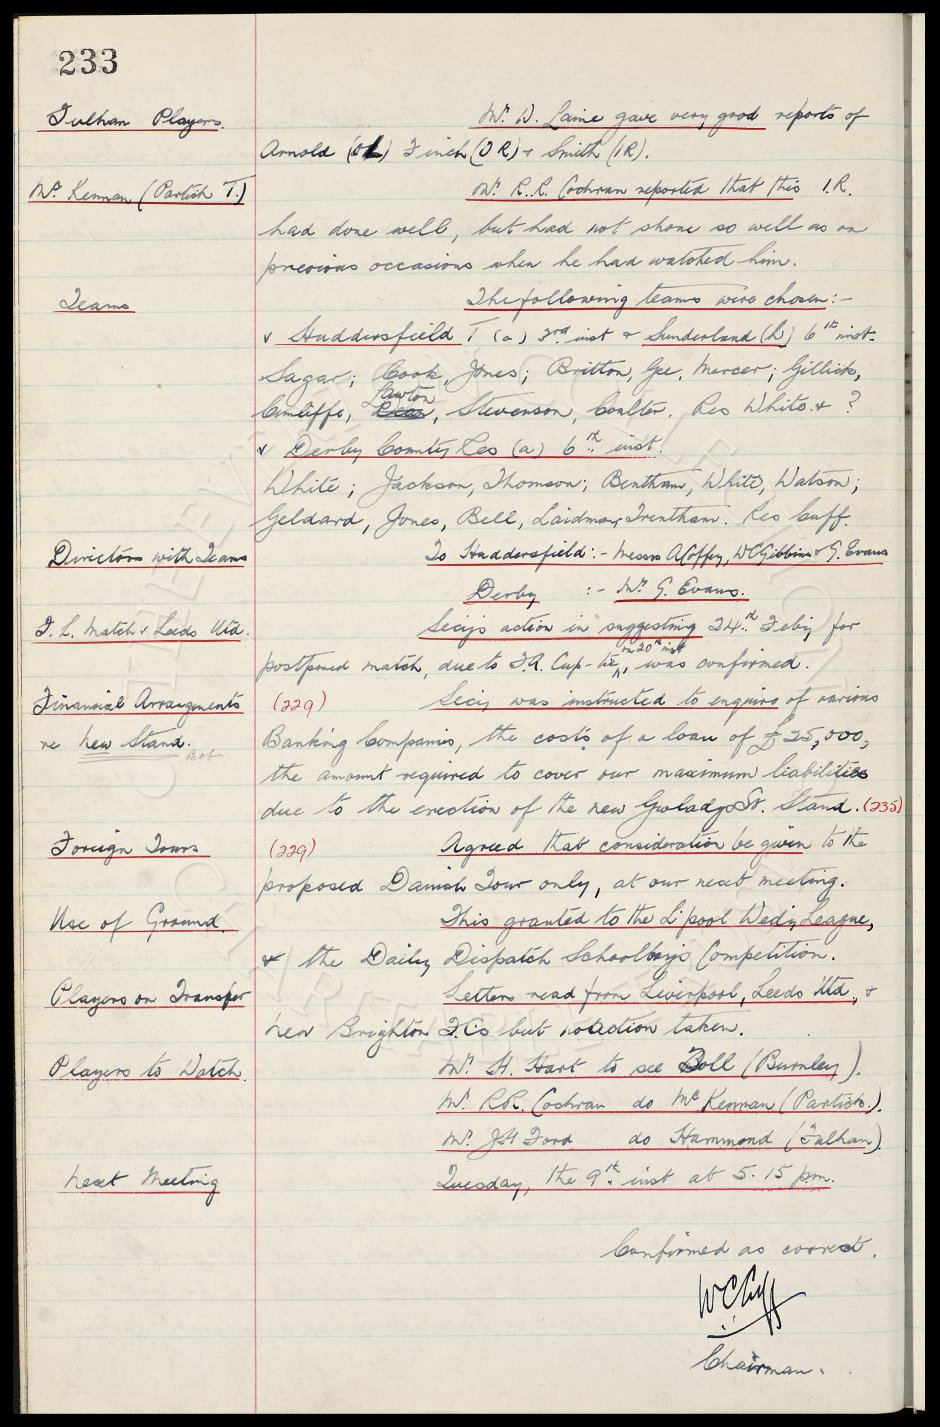 233
Fulham Players. Mr. W. Laine gave very good reports of
Arnold (OL) Finch (OR) & Smith (IR).
McKennan (Partick T.) Mr. R.R. Cochran reported that this I.R.
had done well, but had not shone so well as on
previous occasions when he had watched him.
Teams The following teams were chosen:-
v Huddersfield T (a) 3rd inst & Sunderland (h) 6th inst.
Sagar; Cook, Jones; Britton, Gee, Mercer; Gillick,
Lawton
Cunliffe, Dean, Stevenson, Coulter. Res White & ?
v Derby County Res (a) 6th inst.
White; Jackson, Thomson; Bentham, White, Watson;
Geldard, Jones, Bell, Laidman, Trentham. Res Cuff.
Directors with Teams To Huddersfield:- Messrs A Coffey, WC Gibbins & G. Evans
Derby :- Mr G. Evans.
F.L. Match v Leeds Utd. Secy's action in suggesting 24th Feby for
on 20th inst
postponed match, due to F.A. Cup-tie, was confirmed.
Financial Arrangements (229) Secy was instructed to enquire of various
re New Stand. Banking Companies, the costs of a loan of £25,000,
the amount required to cover our maximum liabilities
due to the erection of the new Gwladys St. Stand. (235)
Foreign Tours (229) Agreed that consideration be given to the
proposed Danish Tour only, at our next meeting.
Use of Ground. This granted to the L'pool Wedy League,
& the Daily Dispatch Schoolboys Competition.
Players on Transfer Letters read from Liverpool, Leeds Utd., &
New Brighton F.Cs but no action taken.
Players to Watch. Mr. H. Hart to see Toll (Burnley).
Mr. R.R. Cochran do McKennan (Partick.).
Mr. JH Ford do Hammond (Fulham).
Next Meeting Tuesday, the 9th inst at 5.15 pm.
Confirmed as correct.
WC Cuff
Chairman.